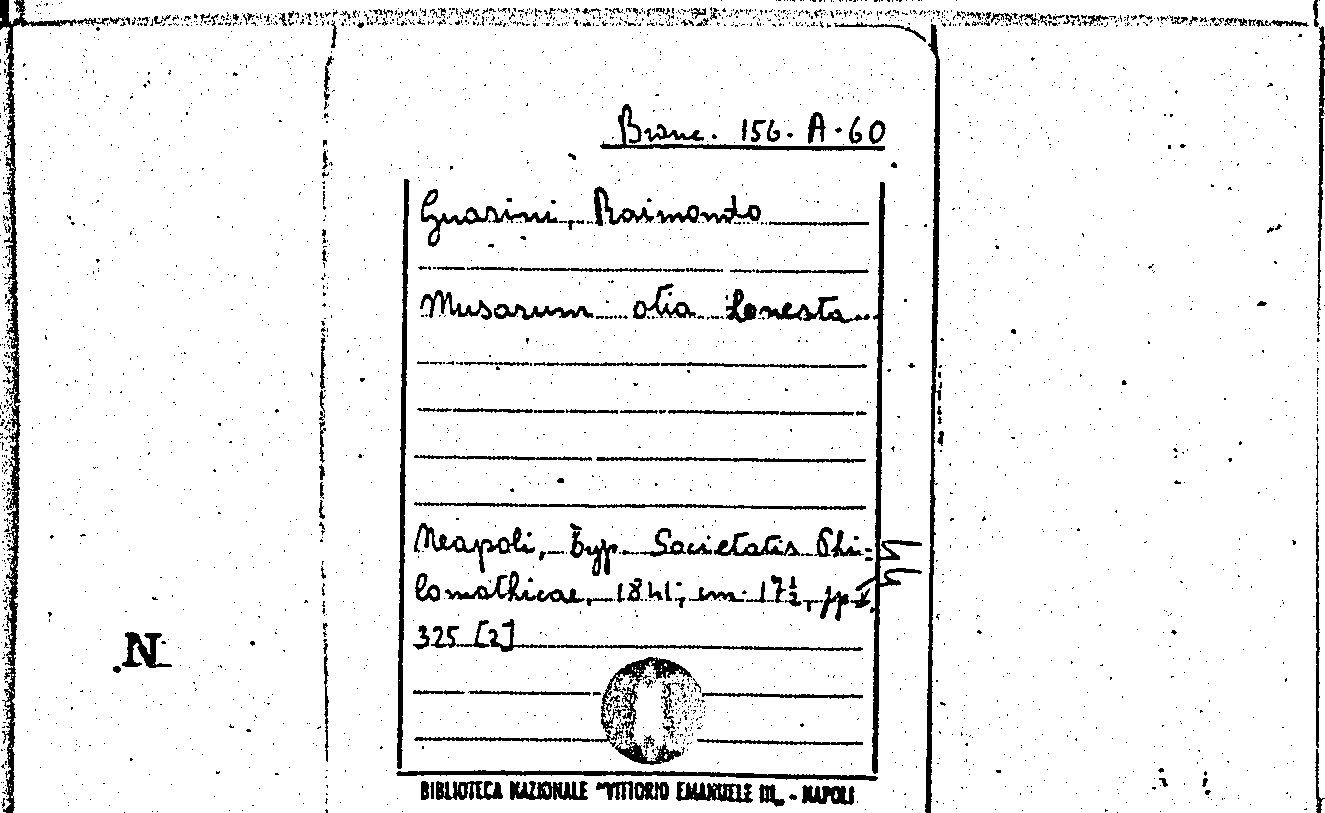 Branc. 156. A. 60
Guarini, Raimondo
Musarum otia honesta...
Neapoli, Typ. Societatis Phi=
lomathicae, 1841; cm. 17½, pp
325 [2]
N
BIBLIOTECA NAZIONALE "VITTORIO EMANUELE III„ - NAPOLI